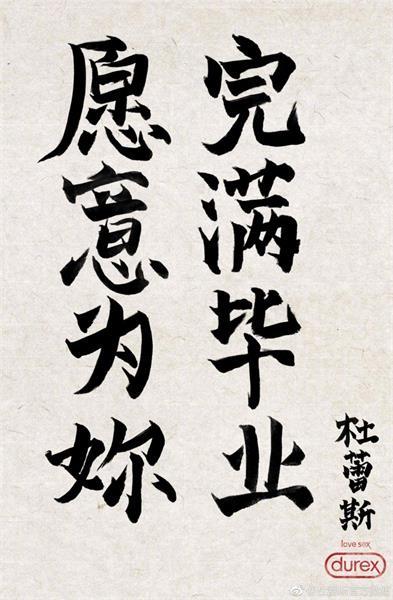 愿意为妳
完满毕业
杜蕾斯
love sex
durex